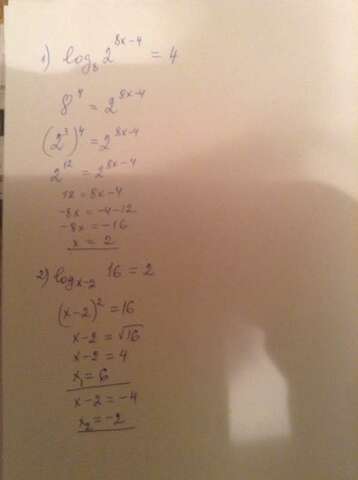 1) log₈ 2^(8x-4) = 4
8^4 = 2^(8x-4)
(2^3)^4 = 2^(8x-4)
2^12 = 2^(8x-4)
12 = 8x-4
-8x = -4-12
-8x = -16
x = 2
2) log_(x-2) 16 = 2
(x-2)^2 = 16
x-2 = √16
x-2 = 4
x₁ = 6
x-2 = -4
x₂ = -2